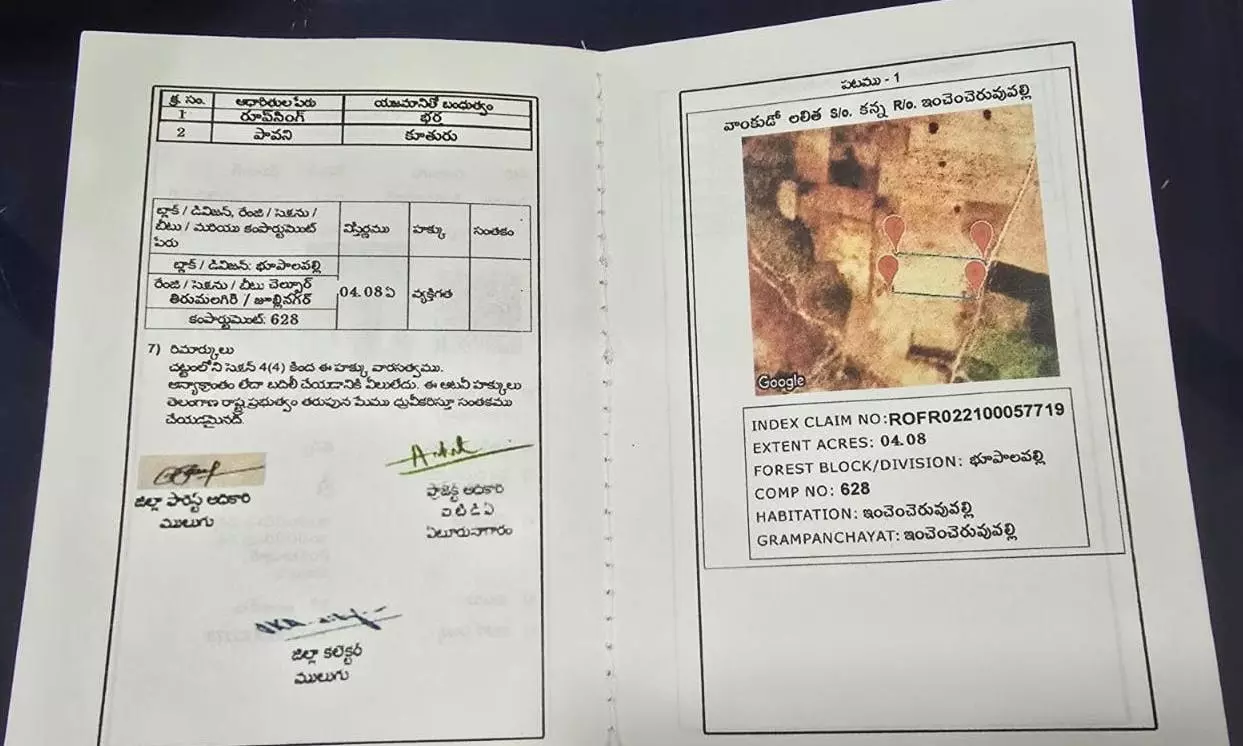 క్ర. సం. ఆధారితుల పేరు యజమానితో బంధుత్వం
1 రూప్‌సింగ్ భర్త
2 పావని కూతురు
బ్లాక్ / డివిజన్, రేంజి / సెక్షను / విస్తీర్ణము హక్కు సంతకం
బీటు / మరియు కంపార్టుమెంట్
పేరు
బ్లాక్ / డివిజన్: భూపాలవల్లి
రేంజి / సెక్షను / బీటు చెల్పూర్ 04.08ఏ వ్యక్తిగత
తిరుమలగిరి / జూల్లినగర్
కంపార్టుమెంట్: 628
7) రిమార్కులు
చట్టంలోని సెక్షన్ 4(4) కింద ఈ హక్కు వారసత్వము.
అన్యాక్రాంతం లేదా బదిలీ చేయడానికి వీలులేదు. ఈ అటవీ హక్కులు
తెలంగాణ రాష్ట్ర ప్రభుత్వం తరుపున మేము ధ్రువీకరిస్తూ సంతకము
చేయడమైనది.
జిల్లా ఫారెస్ట్ అధికారి
ములుగు
ప్రాజెక్ట్ అధికారి
ఐ టి డి ఏ
ఏటూరునాగారం
జిల్లా కలెక్టర్
ములుగు
పటము - 1
వాంకుడో లలిత S/o. కన్న R/o. ఇంచెంచెరువువల్లి
Google
INDEX CLAIM NO:ROFR022100057719
EXTENT ACRES: 04.08
FOREST BLOCK/DIVISION: భూపాలవల్లి
COMP NO: 628
HABITATION: ఇంచెంచెరువువల్లి
GRAMPANCHAYAT: ఇంచెంచెరువువల్లి